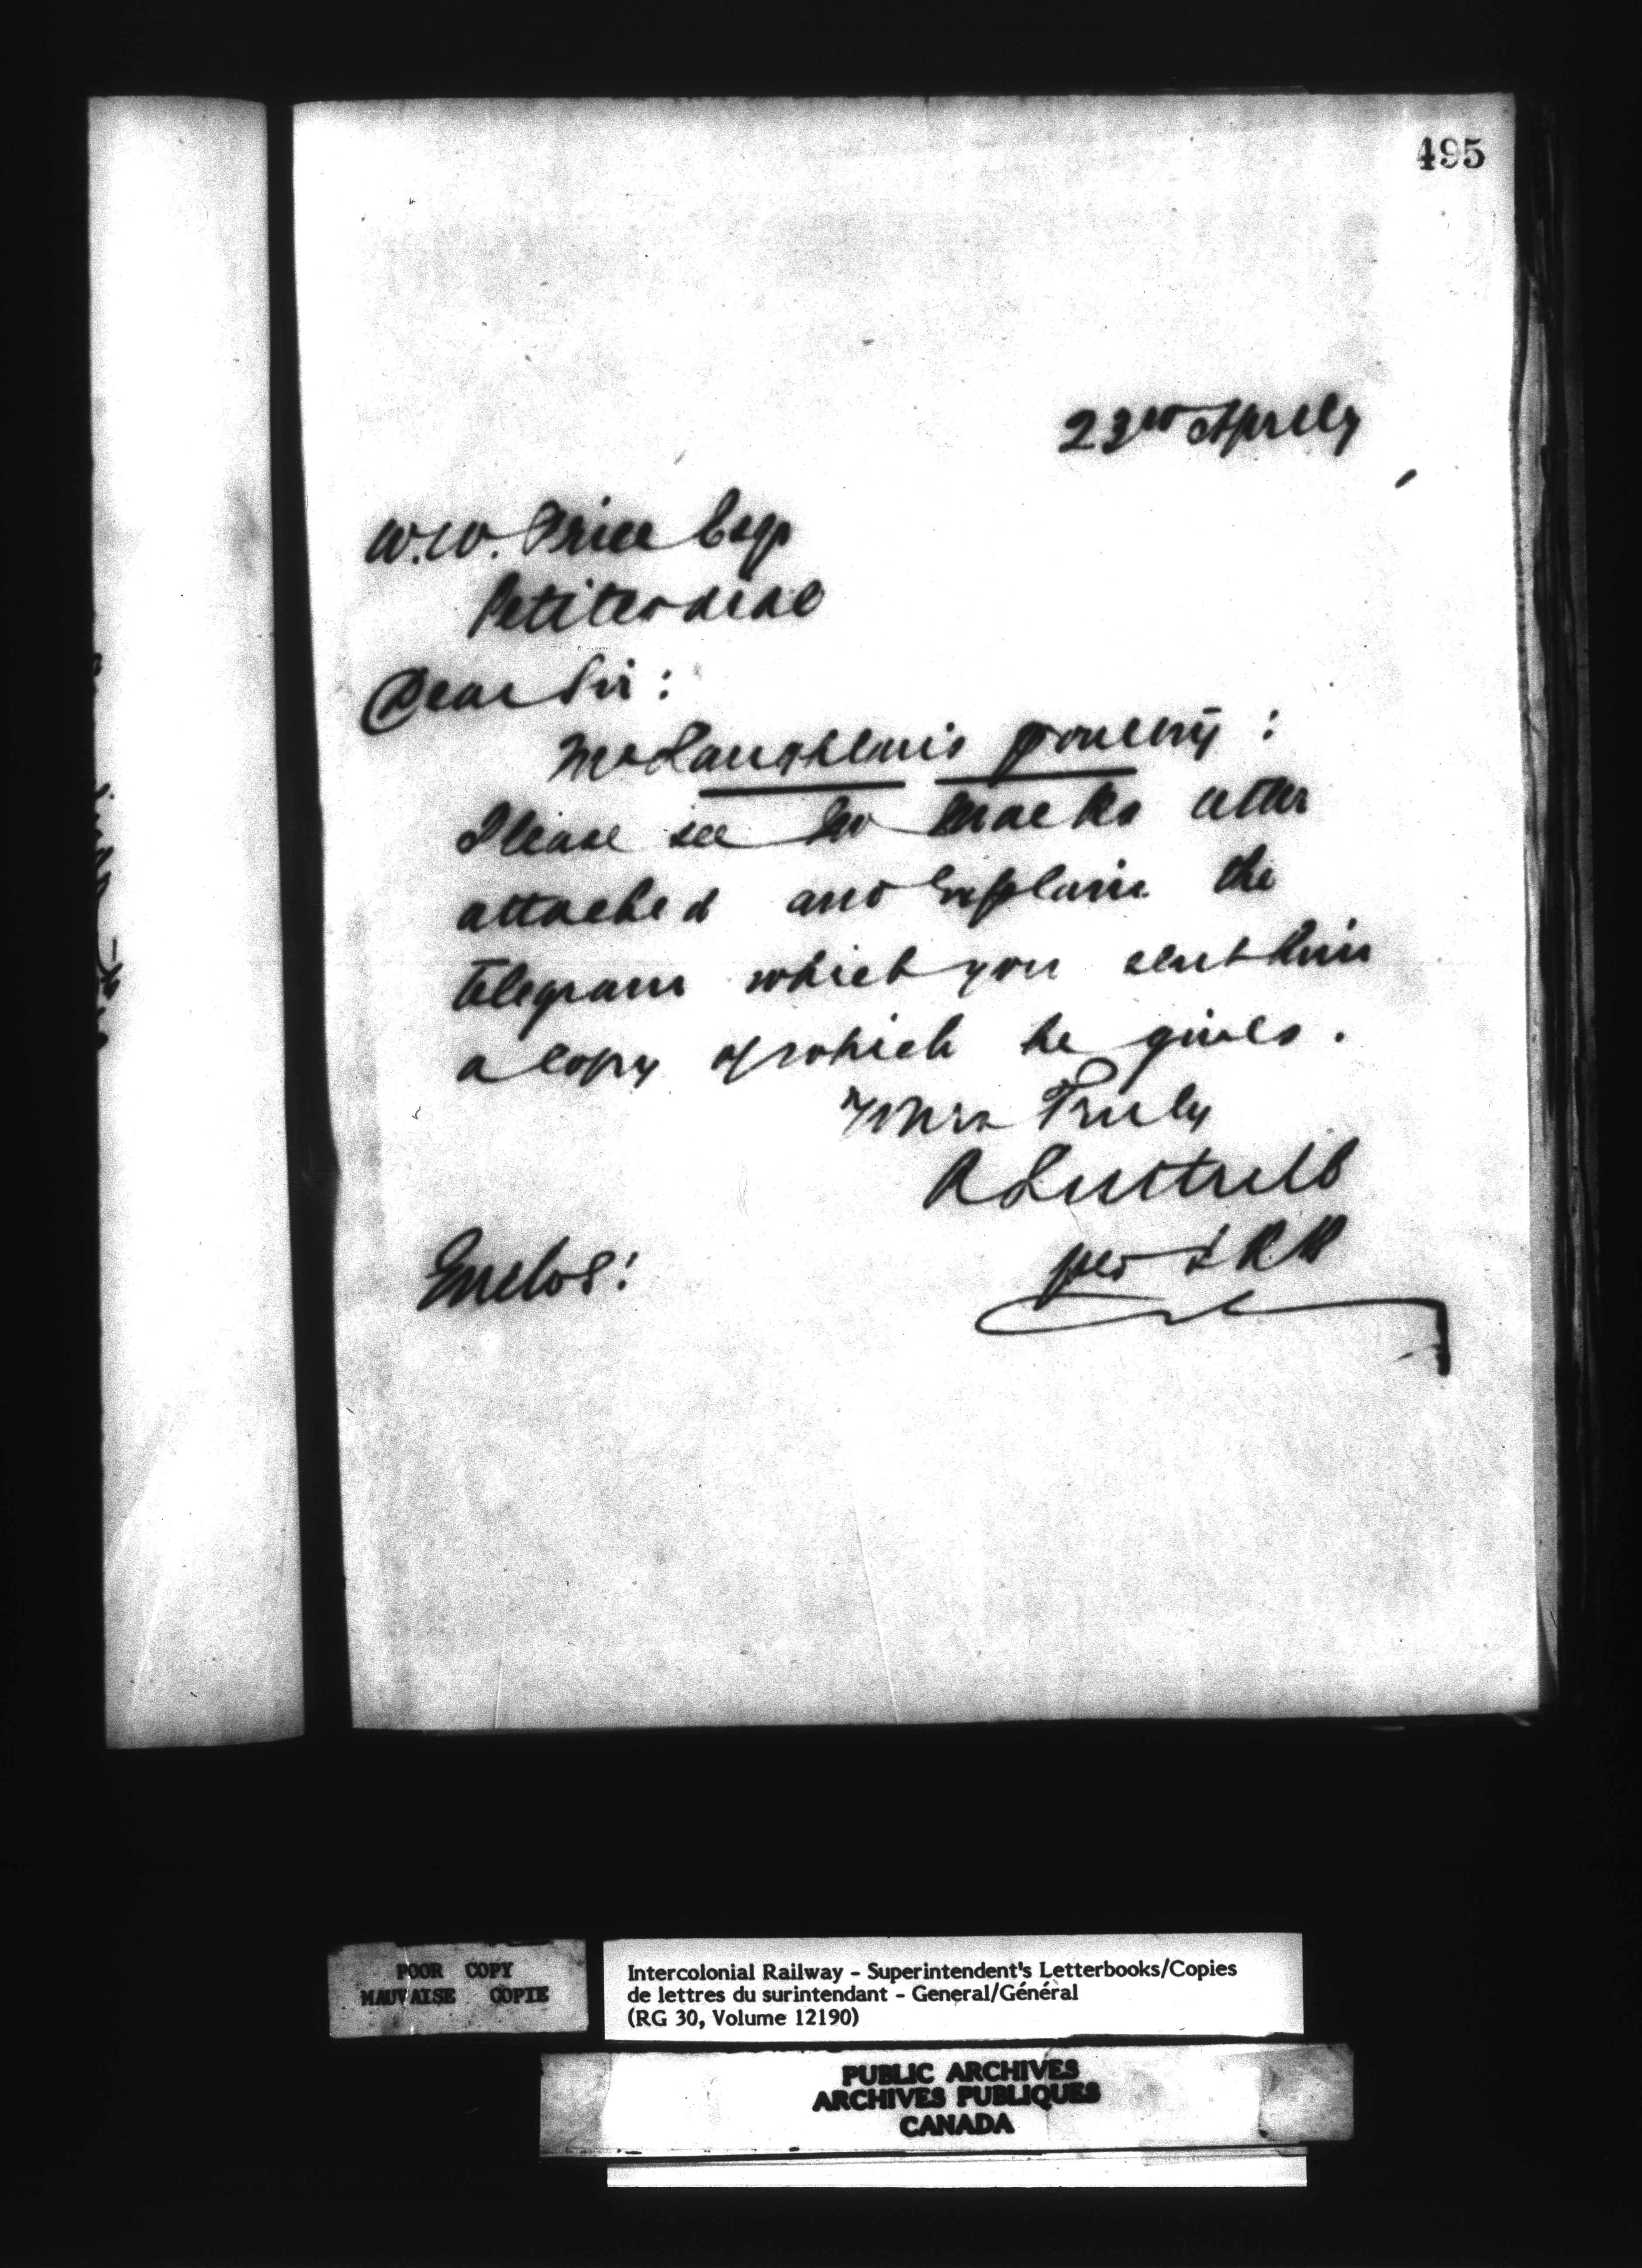 495
23rd April
W.W. Price Esq
Petitcodiac
Dear Sir:
McLaughlin's poultry:
Please see attached and Explain the
telegram which you sent him
a copy of which he gives.
Yours Truly
A Luttrell
per
Enclos:
POOR COPY
MAUVAISE COPIE
Intercolonial Railway - Superintendent's Letterbooks/Copies
de lettres du surintendant - General/Général
(RG 30, Volume 12190)
PUBLIC ARCHIVES
ARCHIVES PUBLIQUES
CANADA